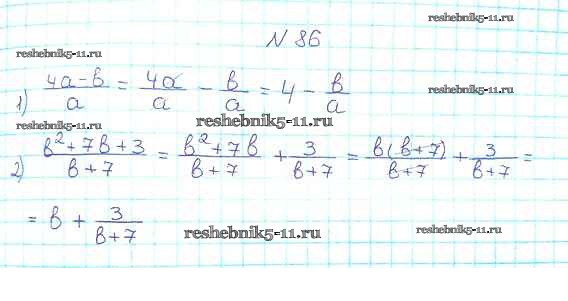 N 86
reshebnik5-11.ru
reshebnik5-11.ru
1) (4a-b)/a = 4a/a - b/a = 4 - b/a
reshebnik5-11.ru
reshebnik5-11.ru
2) (b²+7b+3)/(b+7) = (b²+7b)/(b+7) + 3/(b+7) = b(b+7)/(b+7) + 3/(b+7) =
= b + 3/(b+7)
reshebnik5-11.ru
reshebnik5-11.ru